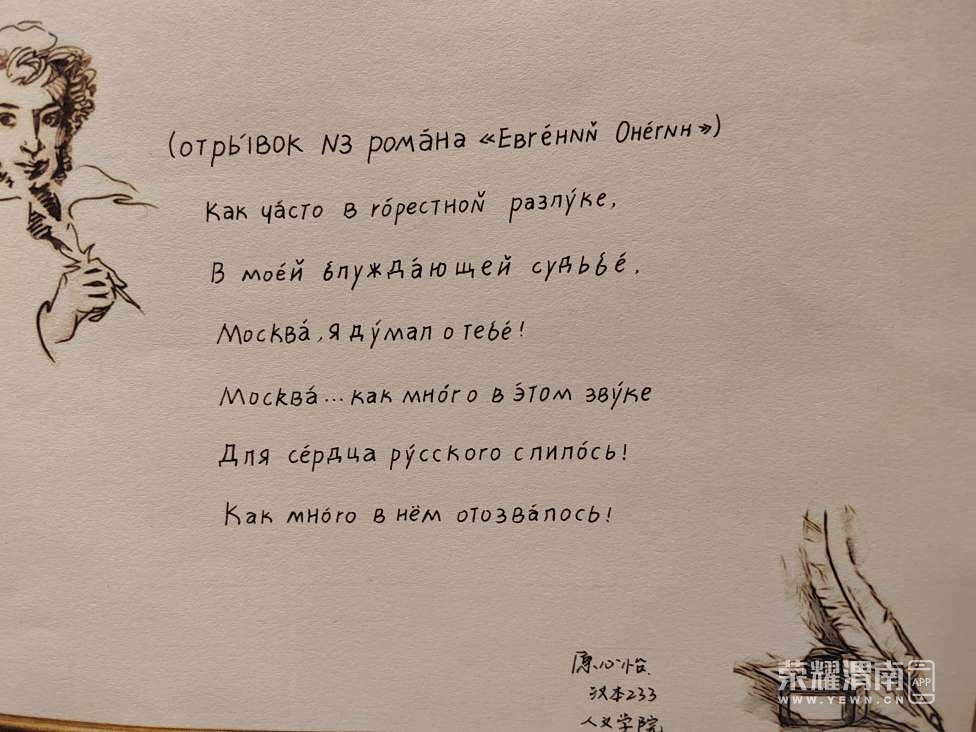 (отры́вок из рома́на «Евге́ний Оне́гин»)
Как ча́сто в го́рестной разлу́ке,
В мое́й блужда́ющей судьбе́,
Москва́, я ду́мал о тебе́!
Москва́...как мно́го в э́том звуке
Для се́рдца ру́сского слило́сь!
Как мно́го в нём отозва́лось!
原心怡
汉本233
人文学院
荣耀渭南 APP
WWW.YEWN.CN